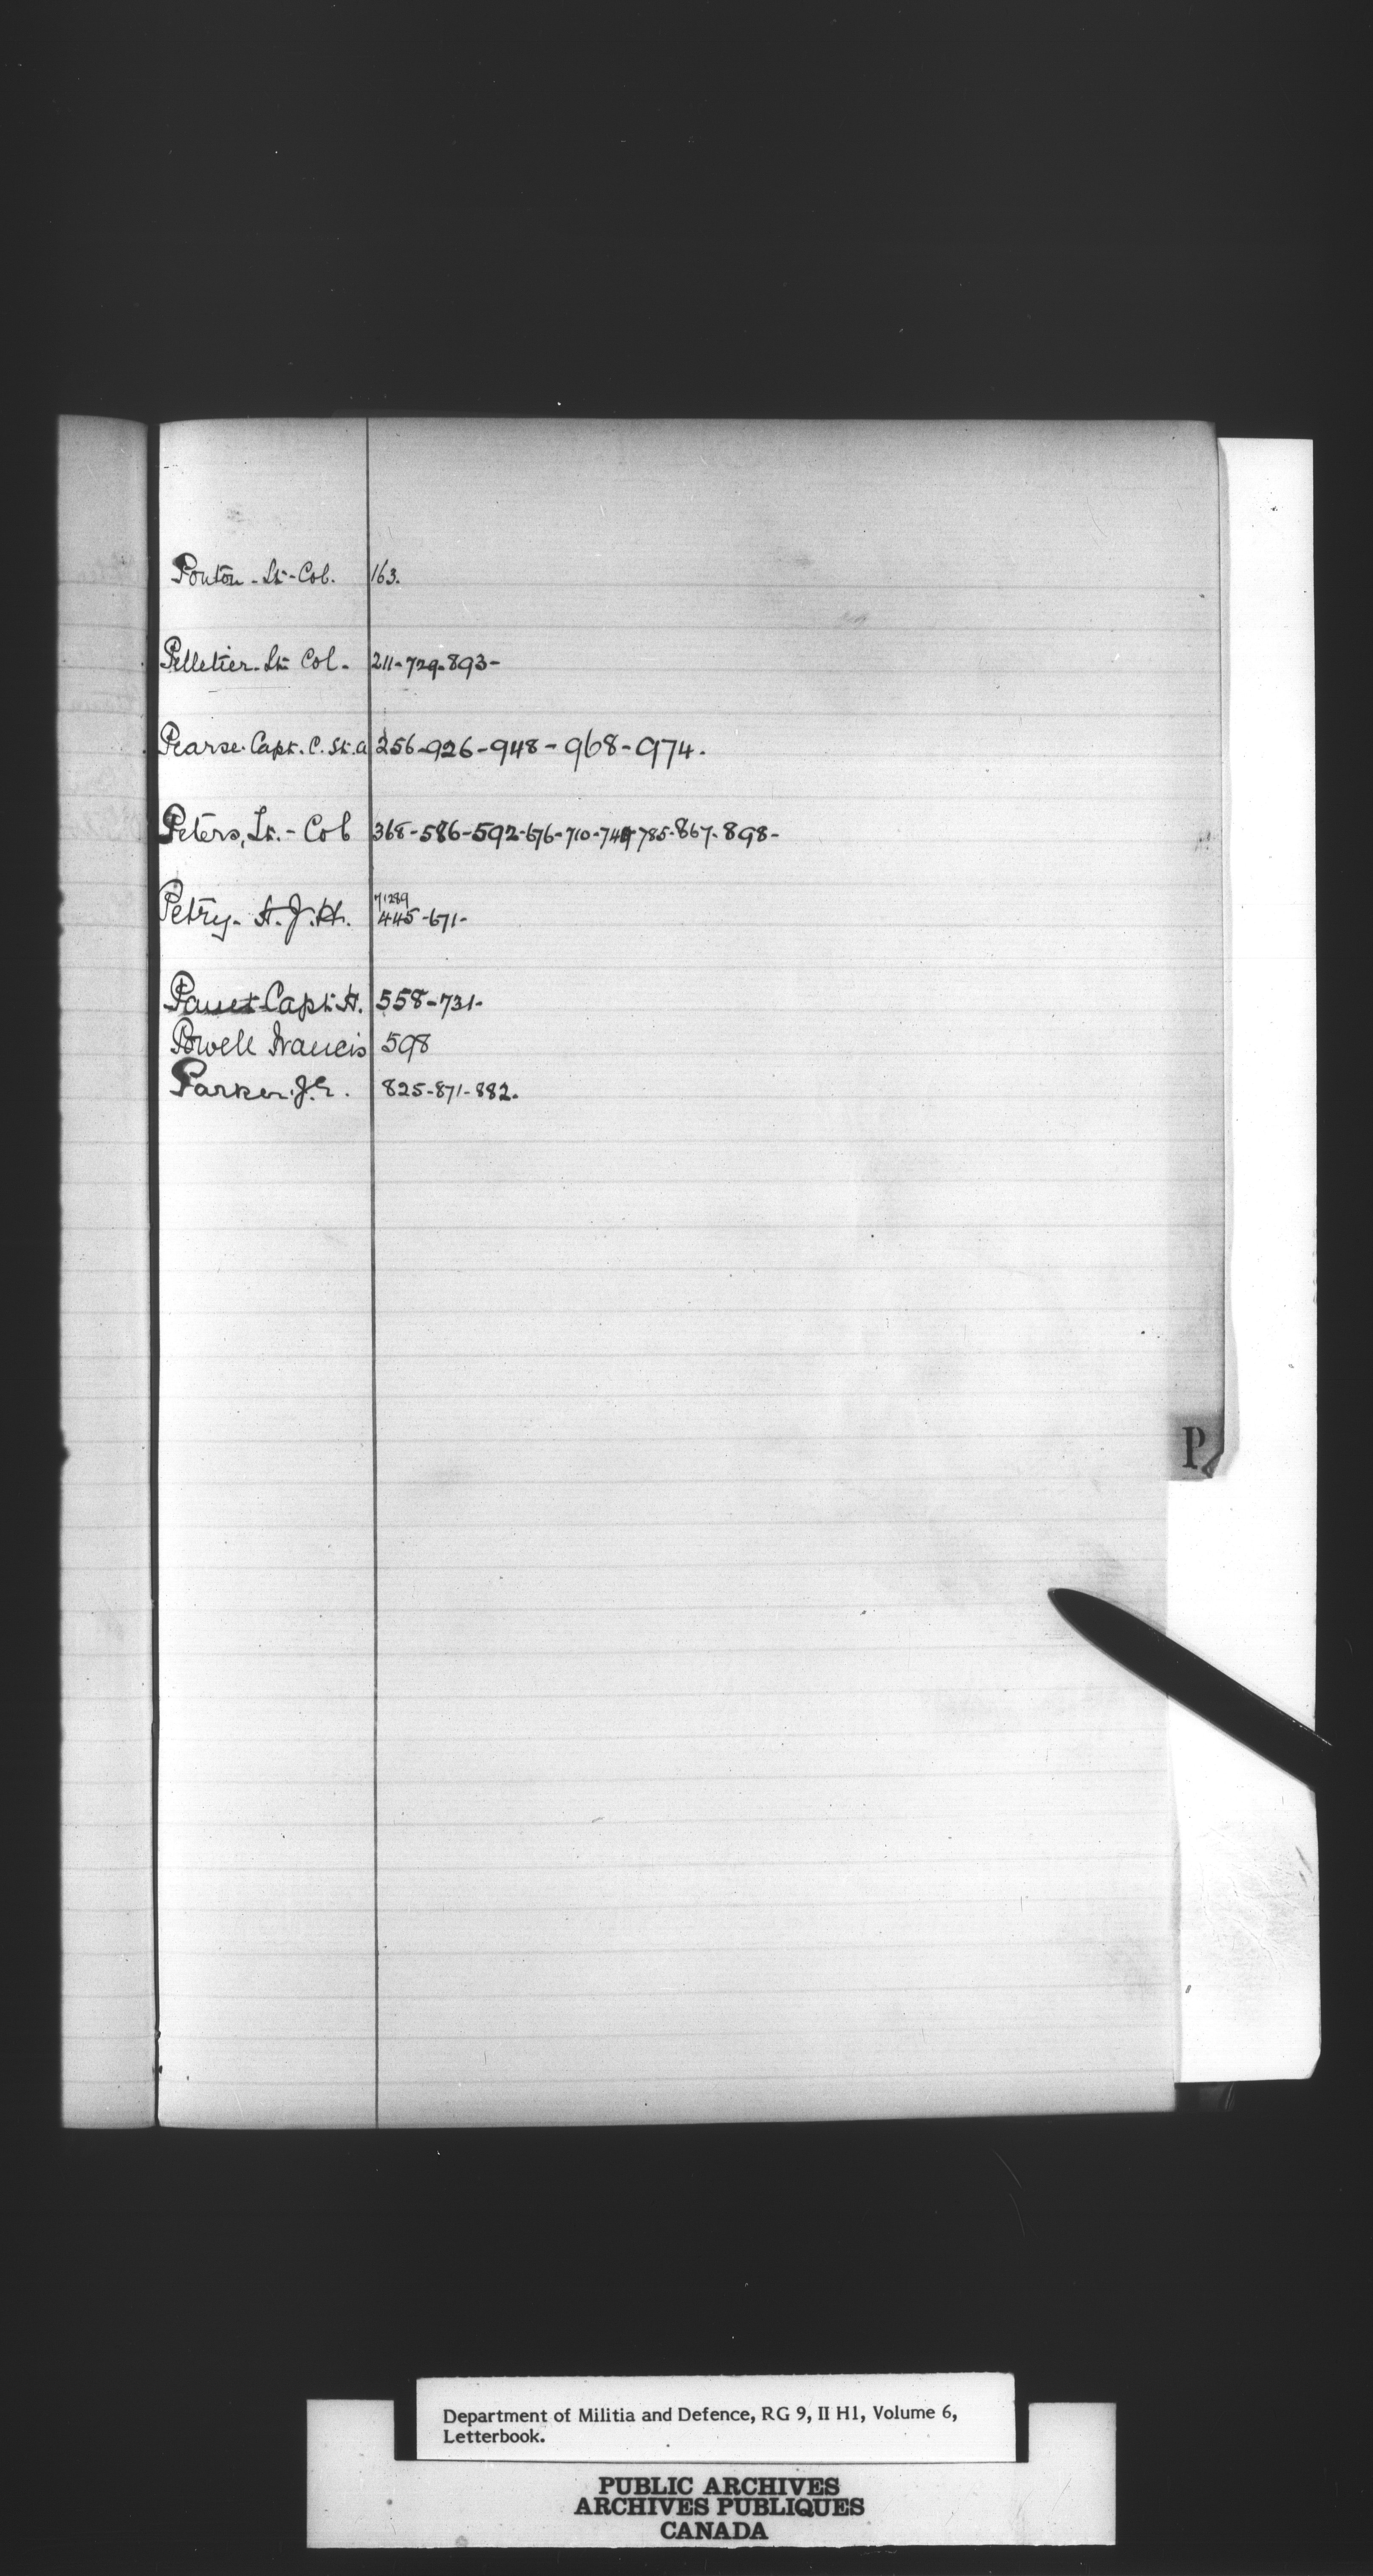 Ponton - Lt-Col. 163.
Pelletier. Lt. Col. - 211-729-893-
Pearse. Capt. C. St. a 256-926-948-968-974.
Peters, Lt. - Col 368-586-592-676-710-749-785-867-898-
71289
Petry - H. J. H. 445-671-
Panet Capt. H. 558-731-
Powell Francis 598
Parker. J. E. 825-871-882.
P
Department of Militia and Defence, RG 9, II H1, Volume 6,
Letterbook.
PUBLIC ARCHIVES
ARCHIVES PUBLIQUES
CANADA